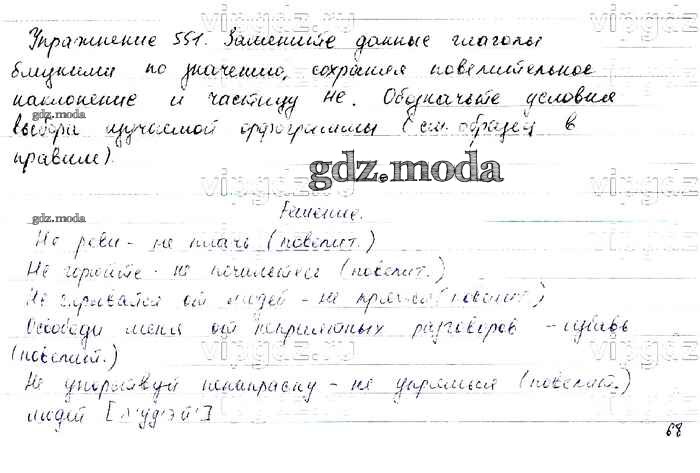 Упражнение 551. Замените данные глаголы
близкими по значению, сохраняя повелительное
наклонение и частицу не. Обозначьте условия
gdz.moda
выбора изучаемой орфограммы (см. образец в
правиле).
gdz.moda
vipgdz.ru
gdz.moda
Решение.
Не реви - не плачь (повелит.)
Не горюйте - не печальтесь (повелит.)
Не скрывайся от людей - не прячься (повелит.)
Освободи меня от неприятных разговоров - избавь
(повелит.)
Не упорствуй понапрасну - не упрямься (повелит.)
людей [л'уд'эй']
68